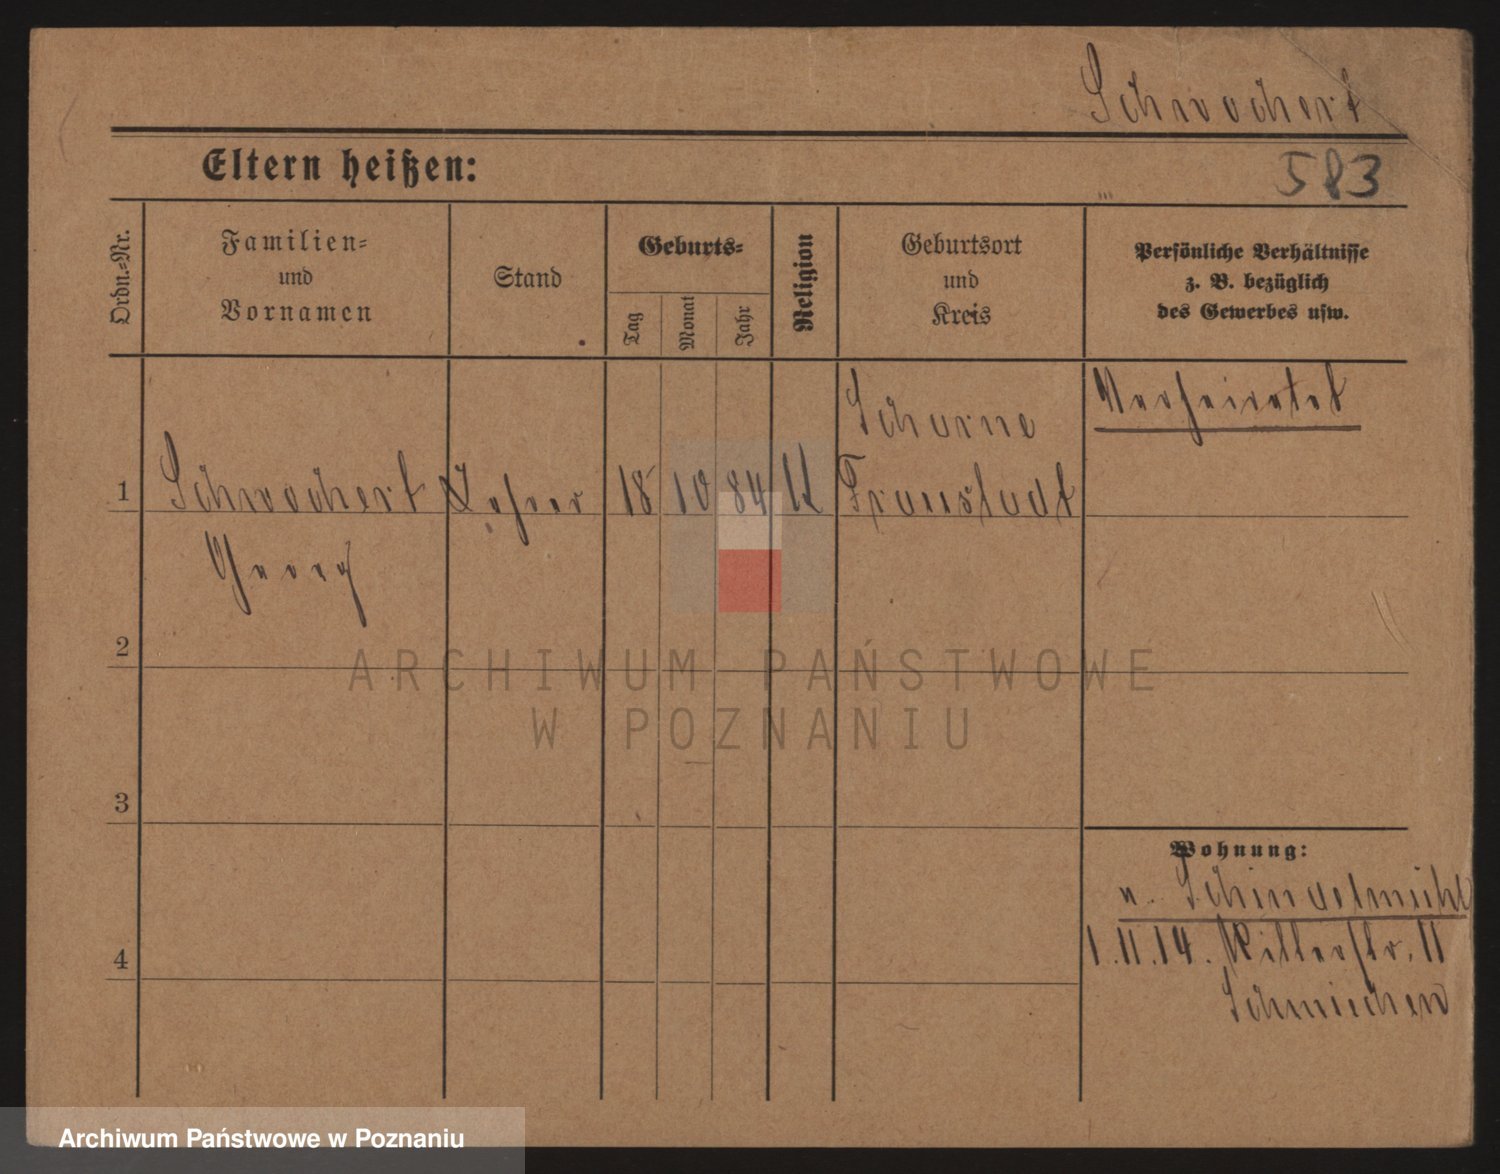 Schwochert
Eltern heißen:
583
Ordn.=Nr.
Familien=
und
Vornamen
Stand
Geburts=
Tag
Monat
Jahr
Religion
Geburtsort
und
Kreis
Persönliche Verhältnisse
z. B. bezüglich
des Gewerbes usw.
Verheiratet
1
Schwochert
Georg
Lehrer
18
10
84
Fraustadt
2
3
4
Wohnung:
1.11.14. Ritterstr. 11
Schmiechen
ARCHIWUM PAŃSTWOWE
W POZNANIU
Archiwum Państwowe w Poznaniu